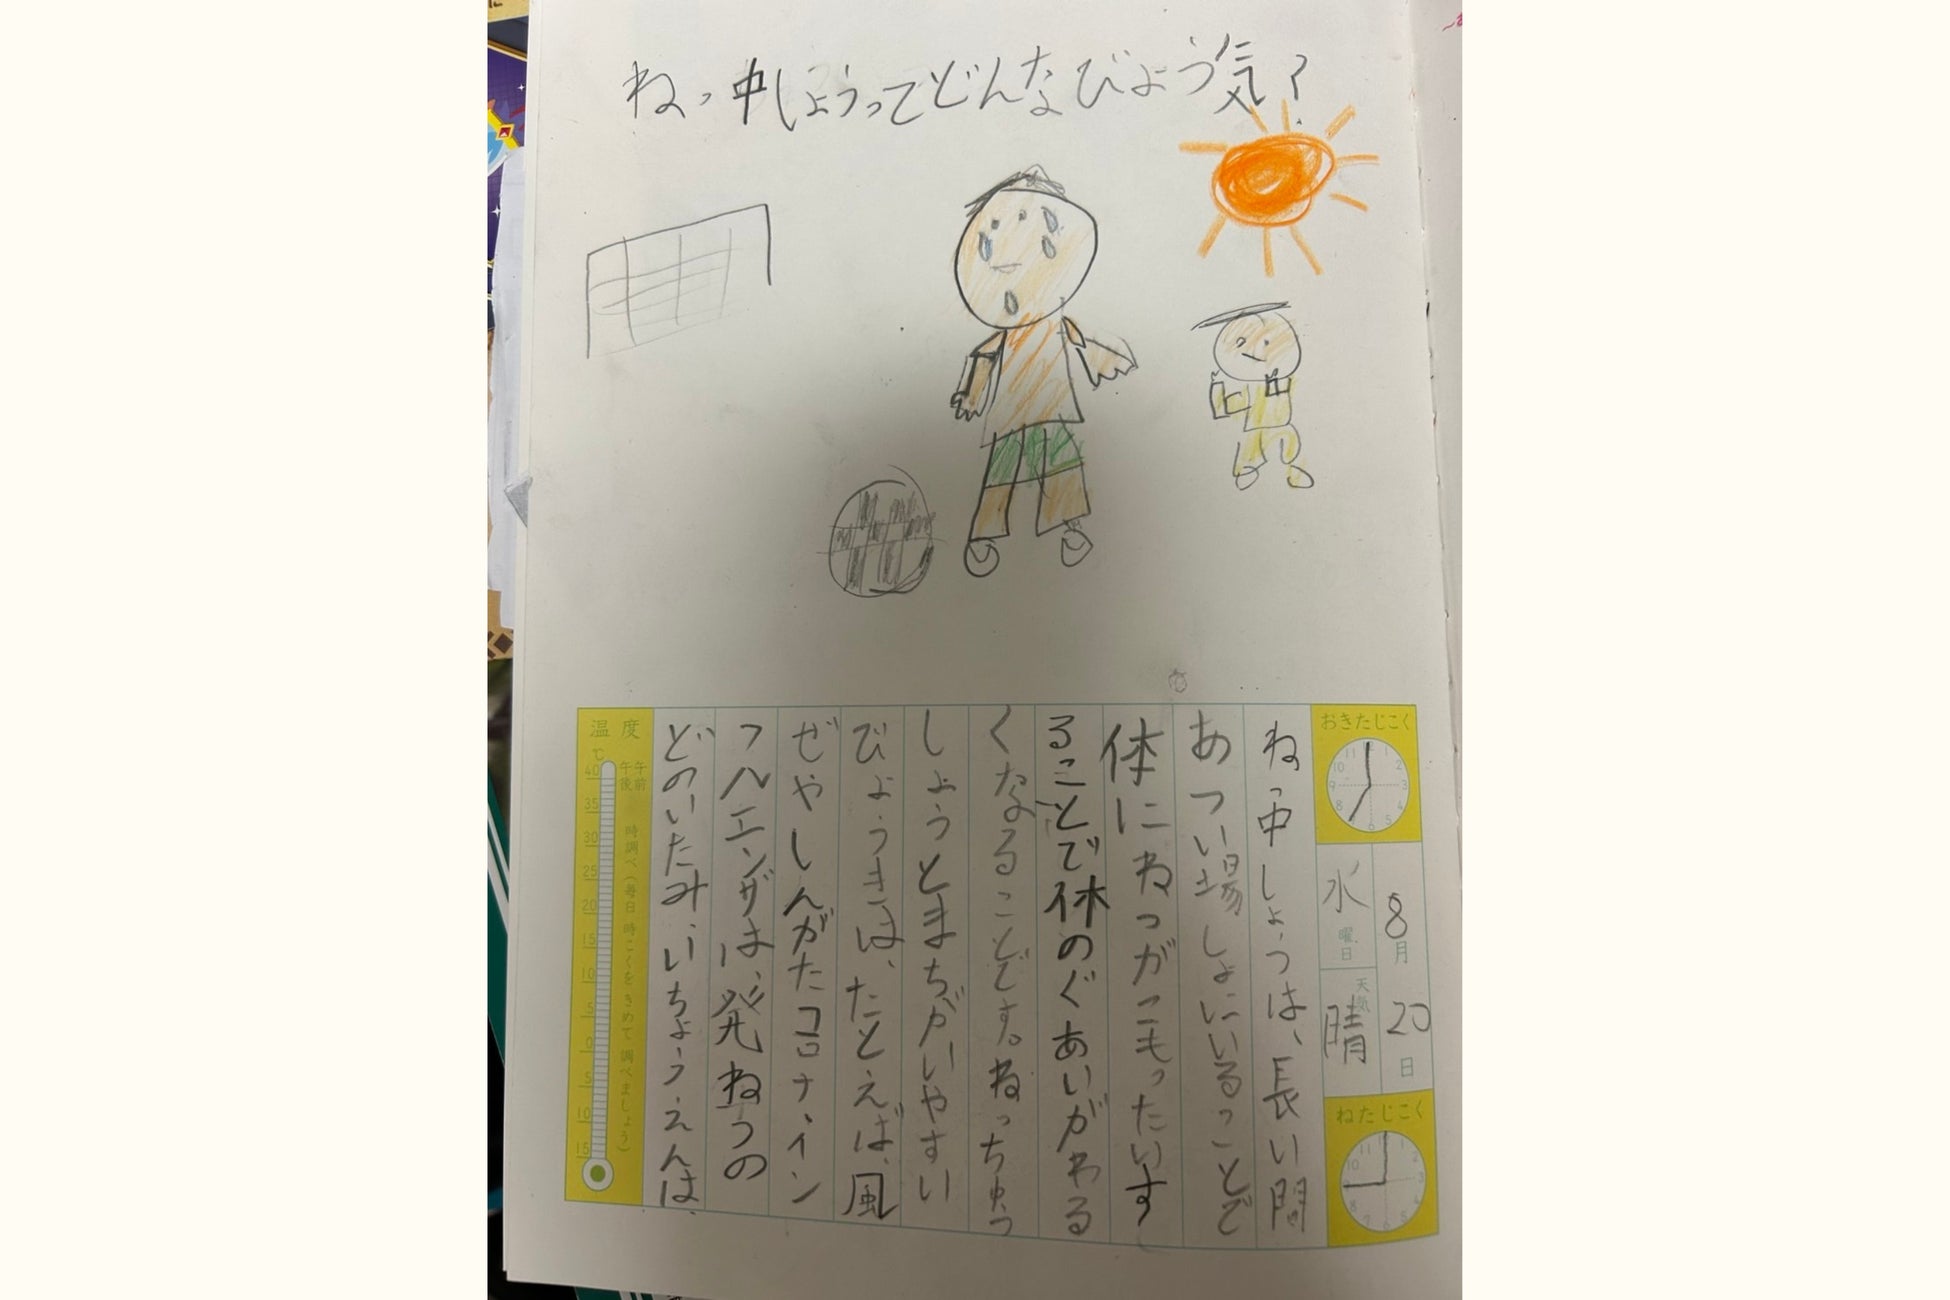 ねっ中しょうってどんなびょう気?
おきたじこく
8月20日
水曜日
天気
晴
ねたじこく
ねっ中しょうは、長い間
あつい場しょにいることで
体にねつがこもったいす
ることで体のぐあいがわる
くなることです。ねっちゅう
しょうとまちがいやすい
びょうきは、たとえば、風
ぜやしんがたコロナ、イン
フルエンザは、発ねつの
どのいたみ、いちょうえんは、
温度
℃
午前
午後
時調べ(毎日 時こくを きめて 調べましょう)
40
35
30
25
20
15
10
5
0
5
10
15